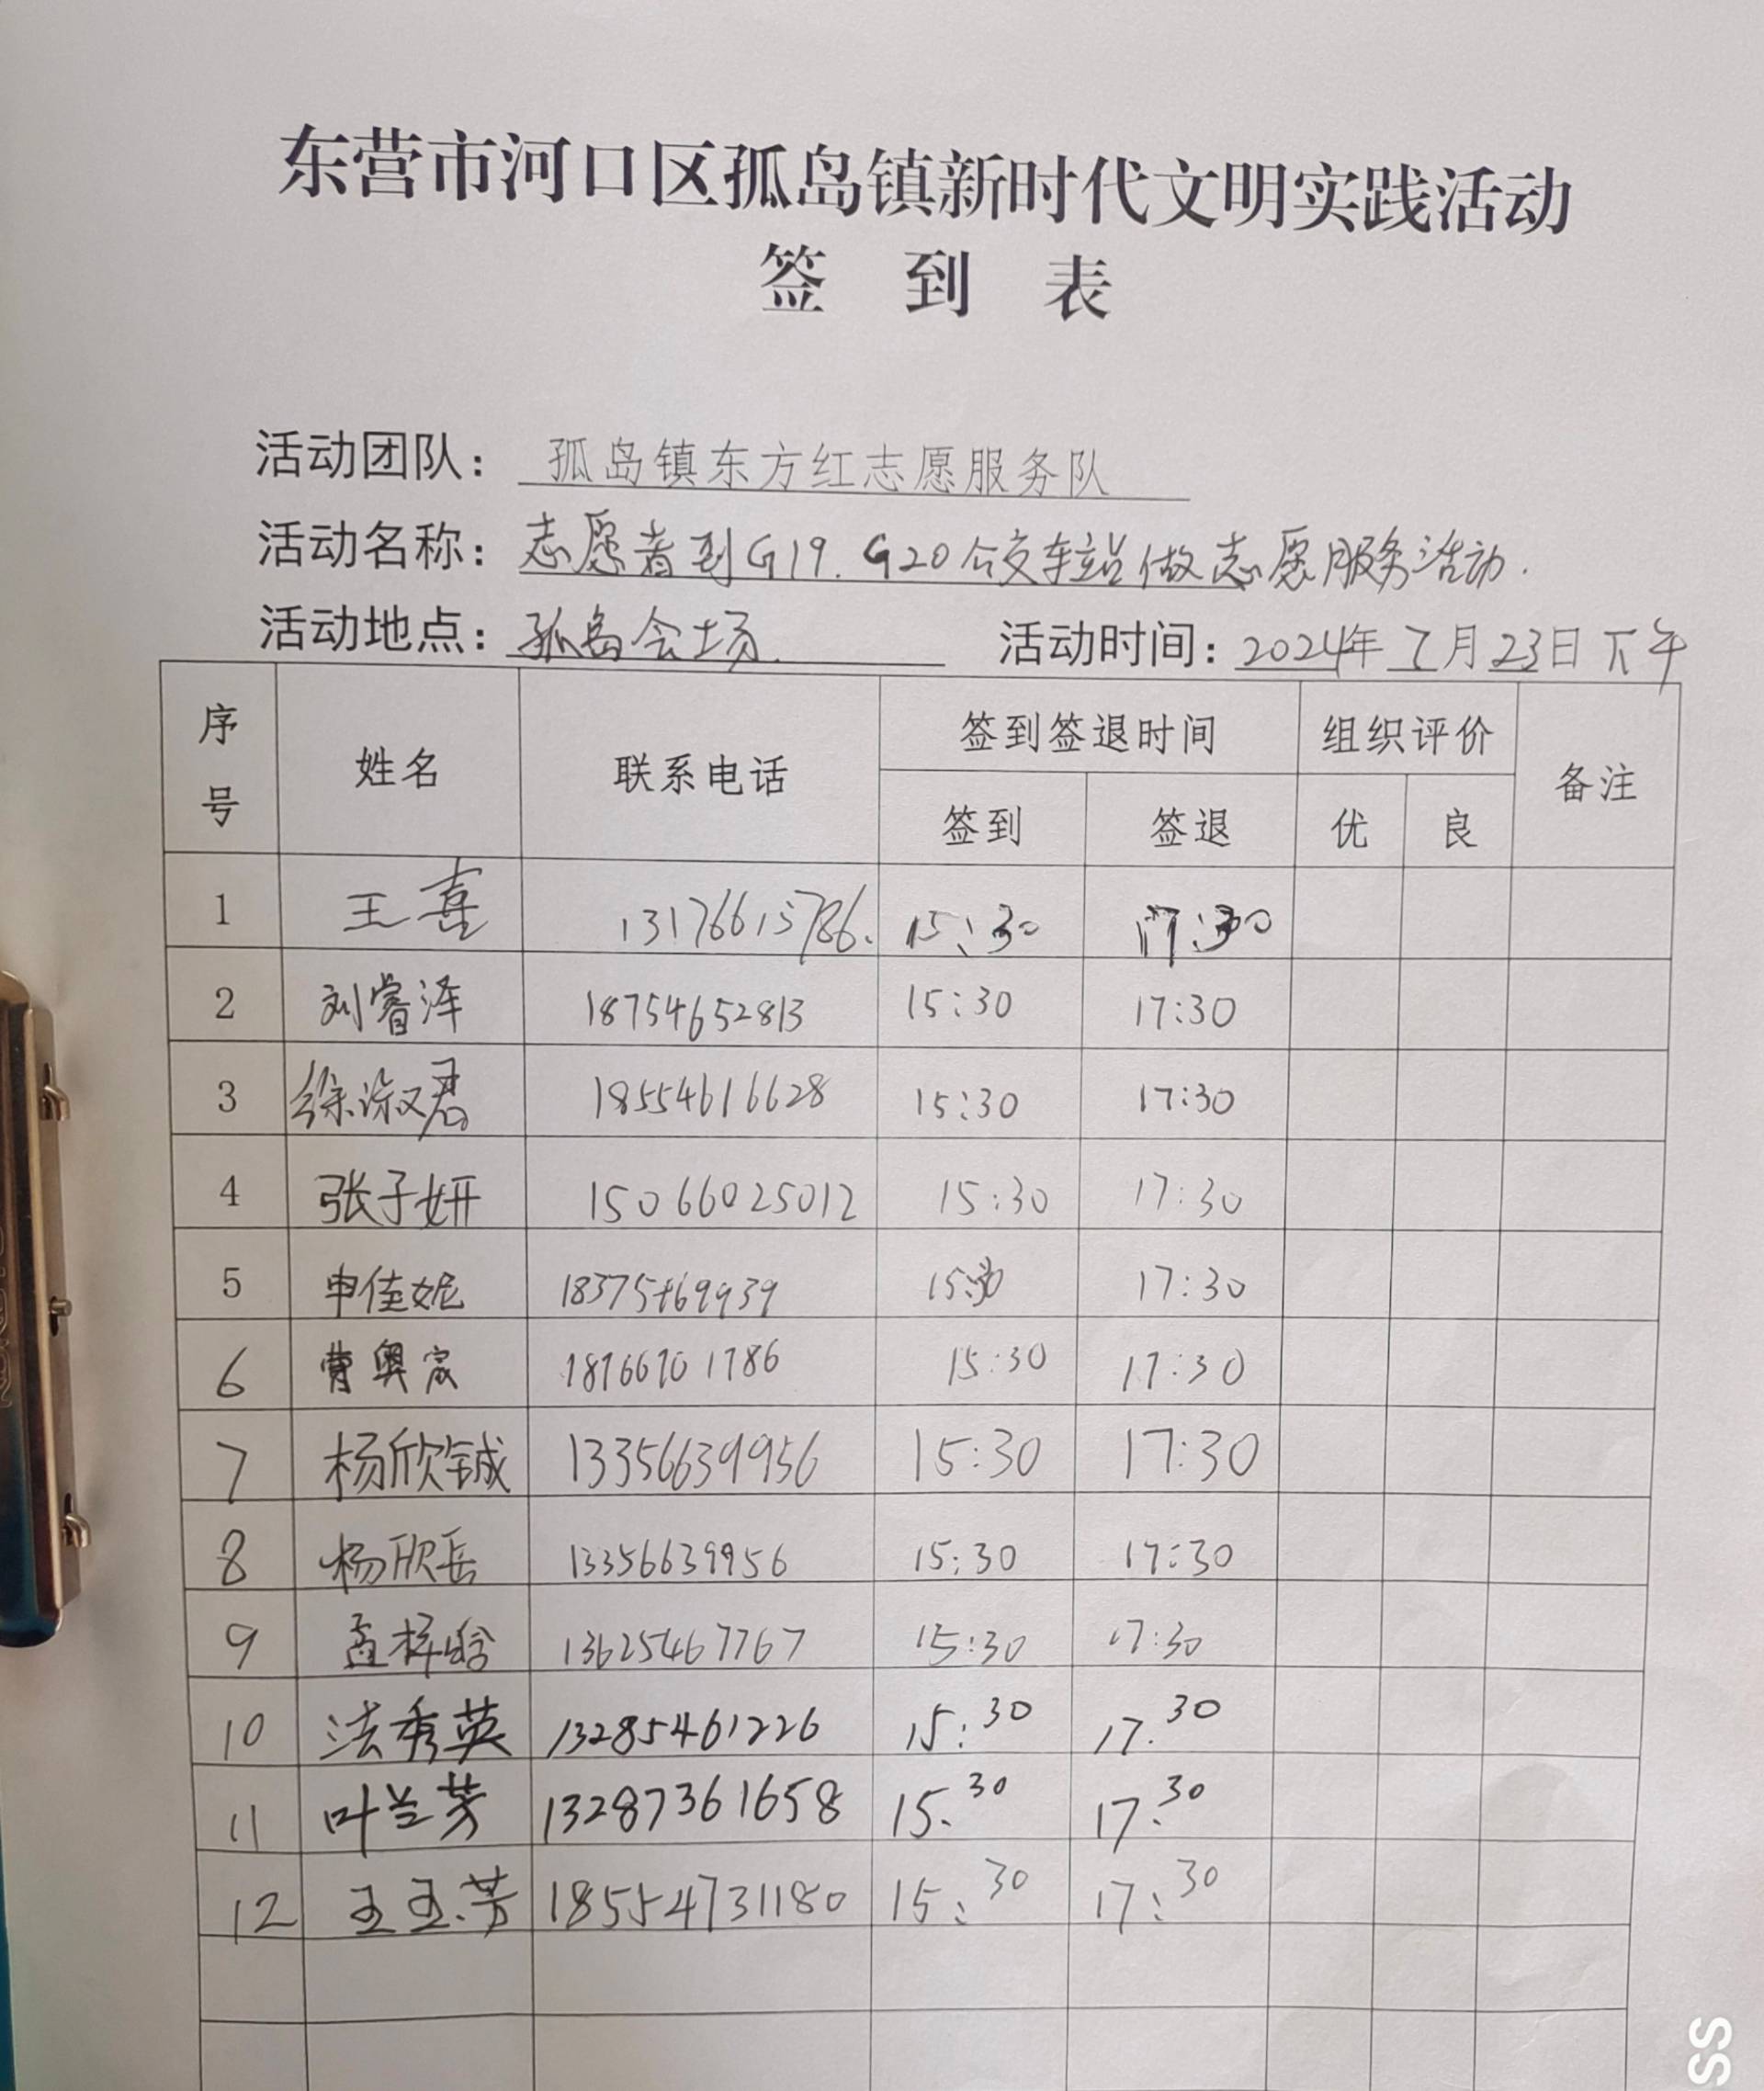 东营市河口区孤岛镇新时代文明实践活动
签 到 表
活动团队：孤岛镇东方红志愿服务队
活动名称：志愿者到G19.G20公交车站做志愿服务活动.
活动地点：孤岛会场. 活动时间：2024年7月23日下午
序号 姓名 联系电话 签到签退时间 组织评价 备注
签到 签退 优 良
1 王喜 13176615786. 15:30 17:30
2 刘睿泽 18754652813 15:30 17:30
3 徐淑君 18554616628 15:30 17:30
4 张子妍 15066025012 15:30 17:30
5 申佳妮 18375469939 15:30 17:30
6 曹奥宸 18766701786 15:30 17:30
7 杨欣铖 13356639956 15:30 17:30
8 杨欣岳 13356639956 15:30 17:30
9 孟梓晗 13625467767 15:30 17:30
10 法秀英 13285461226 15:30 17.30
11 叶兰芳 13287361658 15.30 17.30
12 王玉芳 18554731180 15:30 17:30
SS